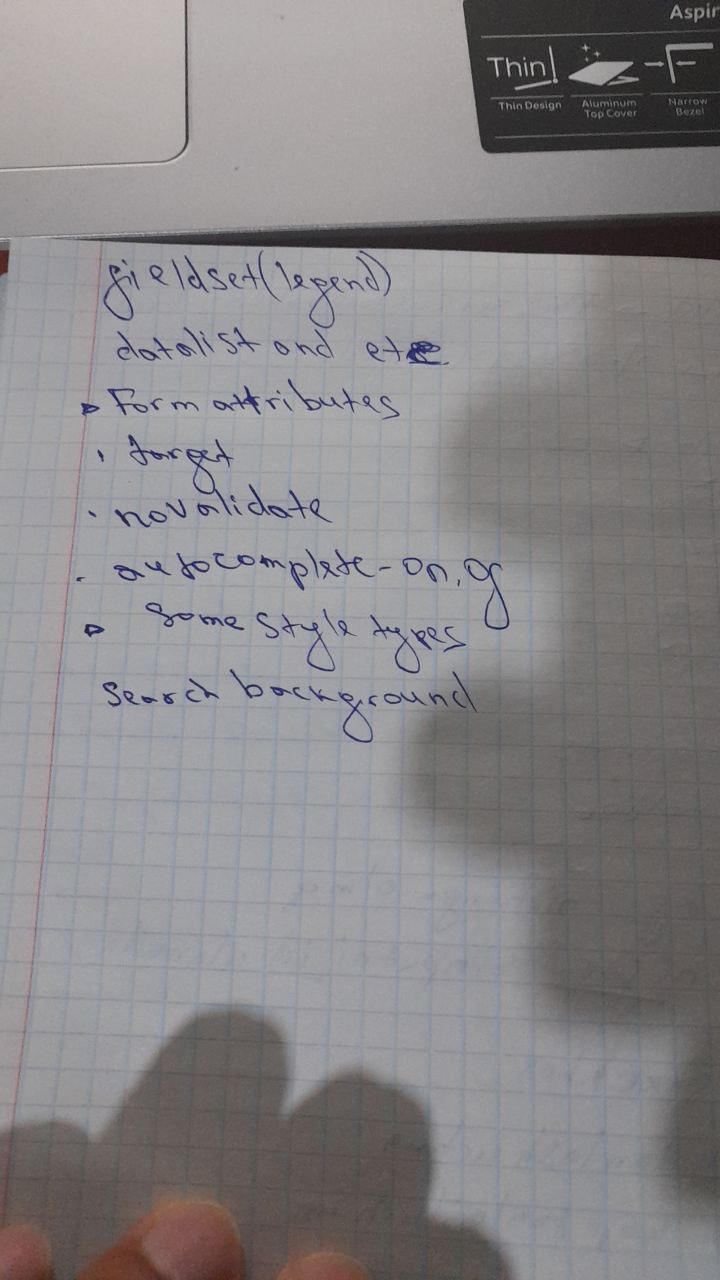 Aspir
Thin!
Thin Design
Aluminum
Top Cover
Narrow
Bezel
fieldset(legend)
datalist and etc
Form attributes
target
novalidate
autocomplete-on, of
Some style types
Search background